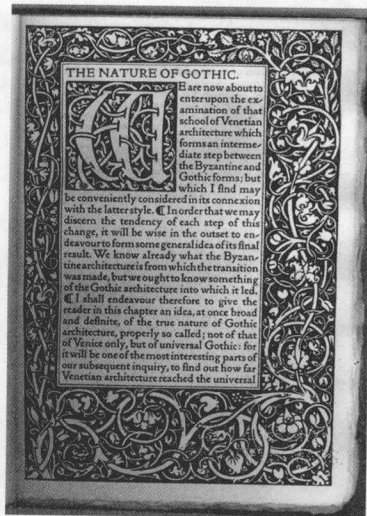 THE NATURE OF GOTHIC.
WE are now about to
enter upon the ex-
amination of that
school of Venetian
architecture which
forms an interme-
diate step between
the Byzantine and
Gothic forms; but
which I find may
be conveniently considered in its connexion
with the latter style. ⁋ In order that we may
discern the tendency of each step of this
change, it will be wise in the outset to en-
deavour to form some general idea of its final
result. We know already what the Byzan-
tine architecture is from which the transition
was made, but we ought to know something
of the Gothic architecture into which it led.
⁋ I shall endeavour therefore to give the
reader in this chapter an idea, at once broad
and definite, of the true nature of Gothic
architecture, properly so called; not of that
of Venice only, but of universal Gothic: for
it will be one of the most interesting parts of
our subsequent inquiry, to find out how far
Venetian architecture reached the universal